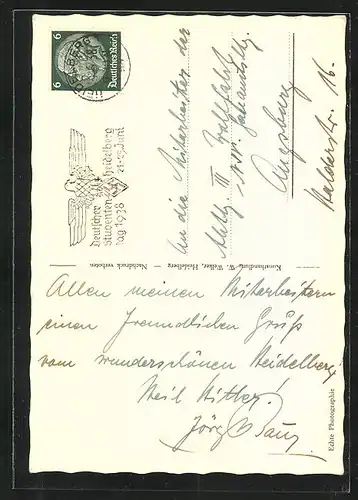 6
Deutsches Reich
6
Deutscher
Studenten-
tag 1938
Heidelberg
21-25. Juni
An die Mitarbeiter der
Abtlg. III Wallfahrt
Augsburg
Halderstr. 16.
Kunsthandlung W. Welker, Heidelberg — Nachdruck verboten
Allen meinen Mitarbeitern
einen freundlichen Gruß
vom wunderschönen Heidelberg!
Heil Hitler!
Jörg
Echte Photographie